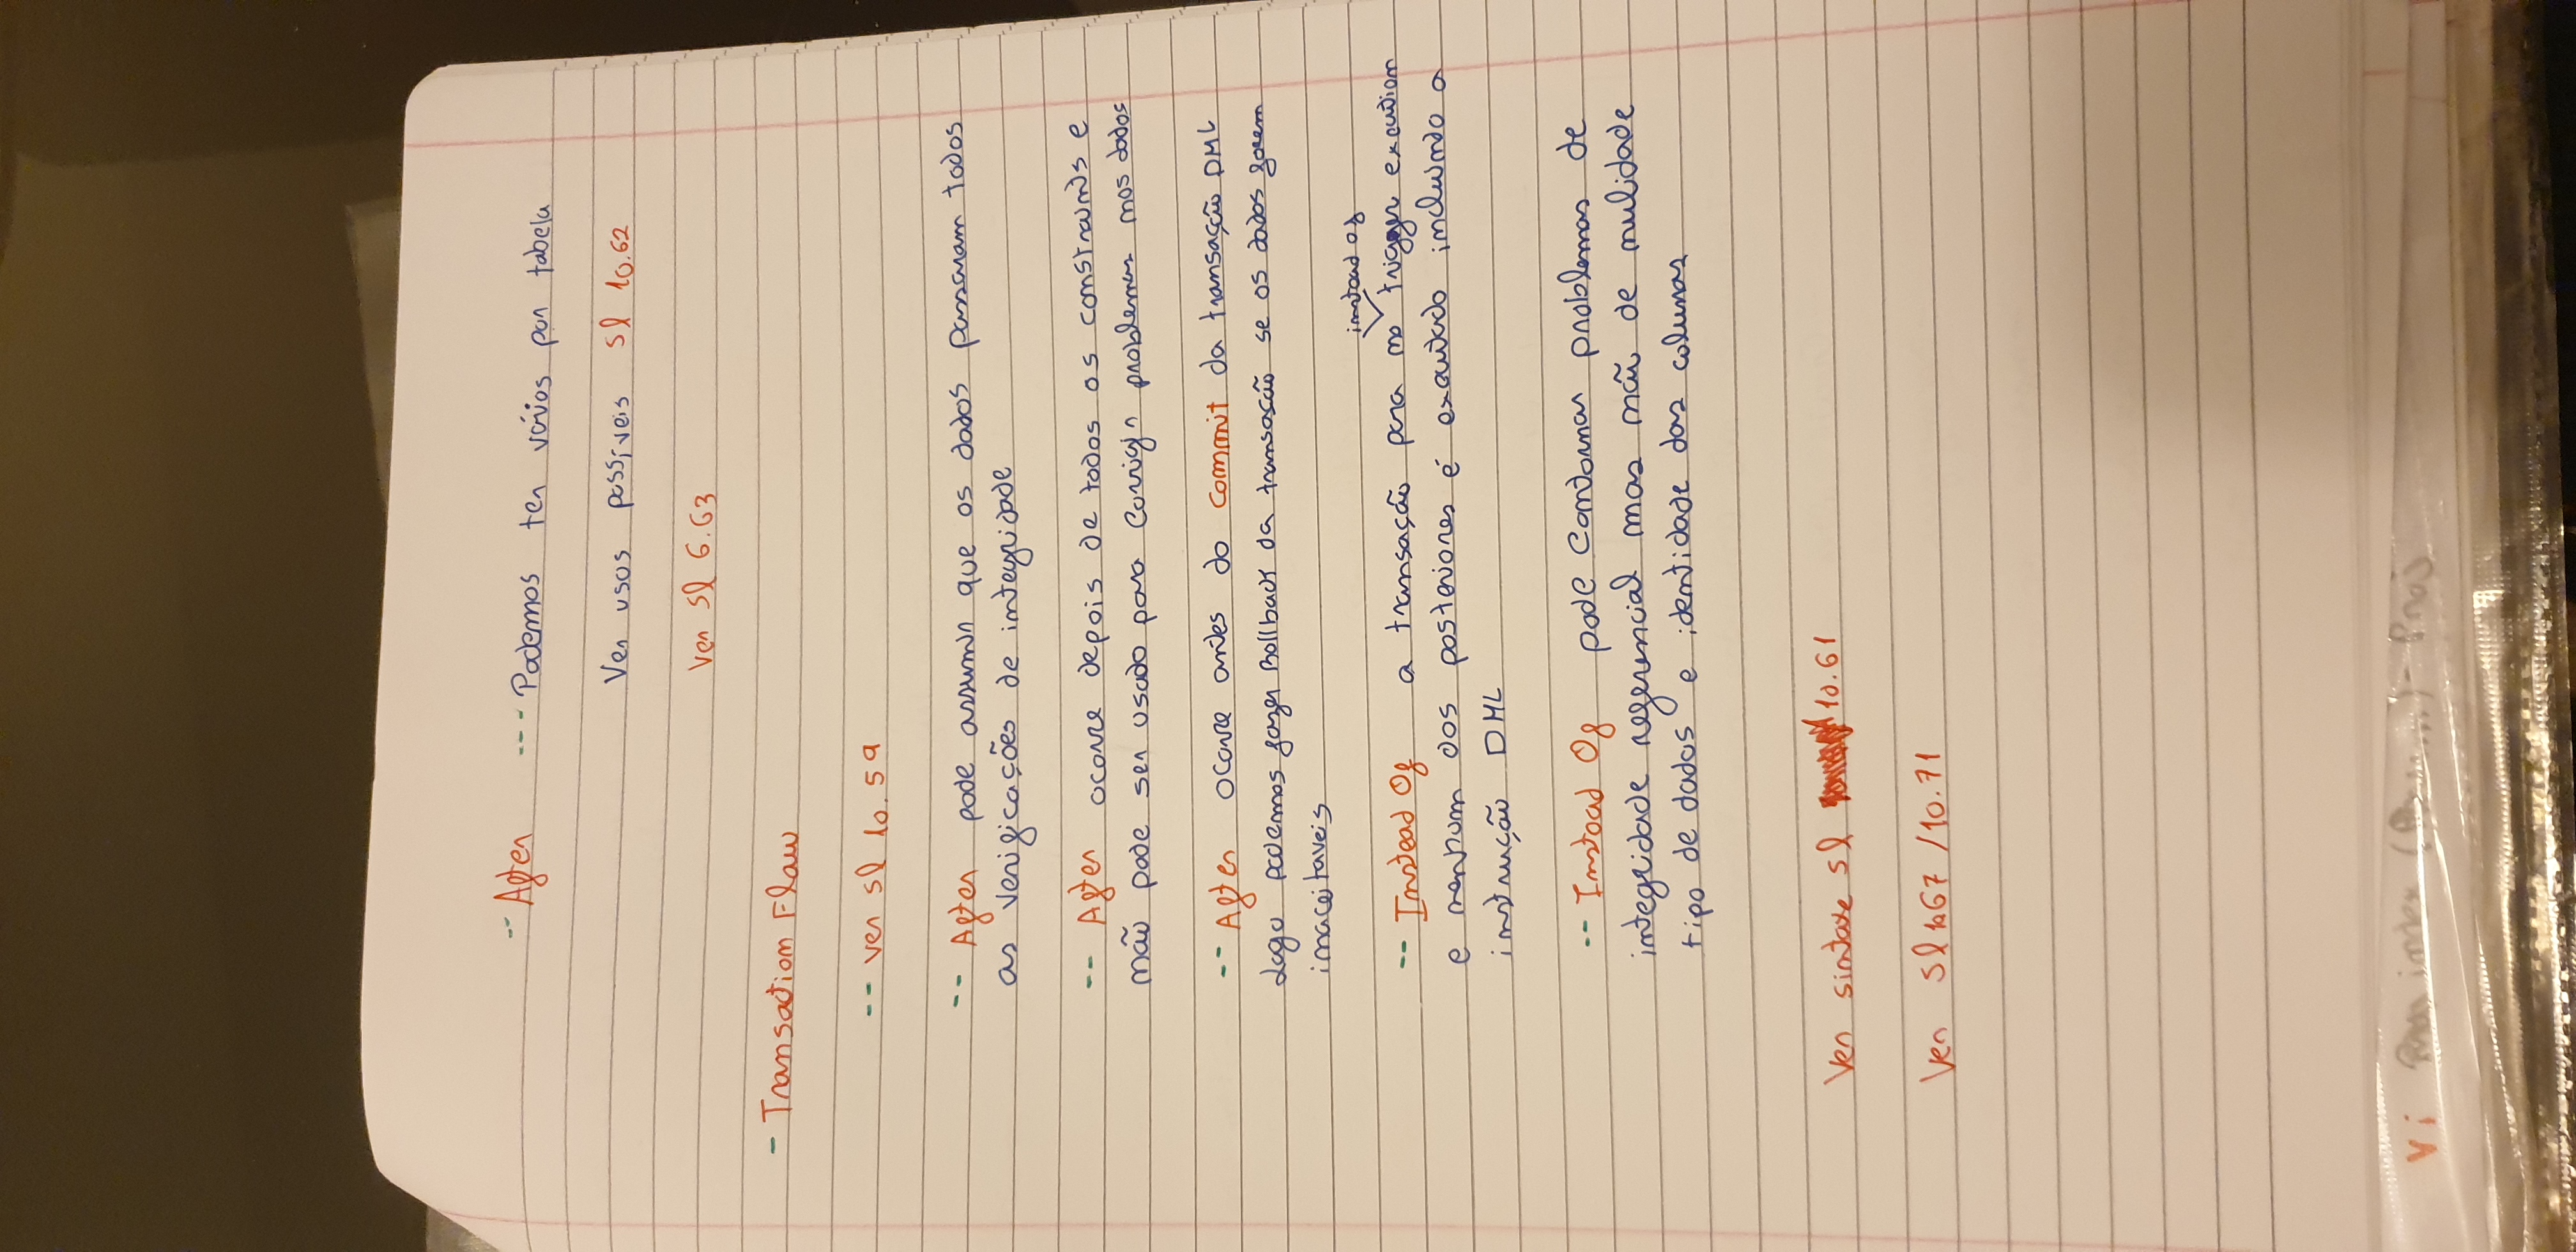 -- After --- Podemos ter vários por tabela
Ver usos possíveis sl 10.62
Ver sl 6.63
- Transation Flow
-- ver sl 10.59
-- After pode assumir que os dados passaram todos
as verificações de integridade
-- After ocorre depois de todos os constraints e
não pode ser usado para corrigir problemas nos dados
-- After ocorre antes do commit da transação DML
Logo podemos fazer Rollback da transação se os dados forem
inaceitaveis
instead of
-- Instead Of a transação para no trigger execution
e nenhum dos posteriores é executado incluindo a
instrução DML
-- Instead Of pode contornar problemas de
integridade referencial mas não de nulidade
tipo de dados e identidade das colunas
Ver sintaxe sl 10.61
Ver sl 10.67 / 10.71